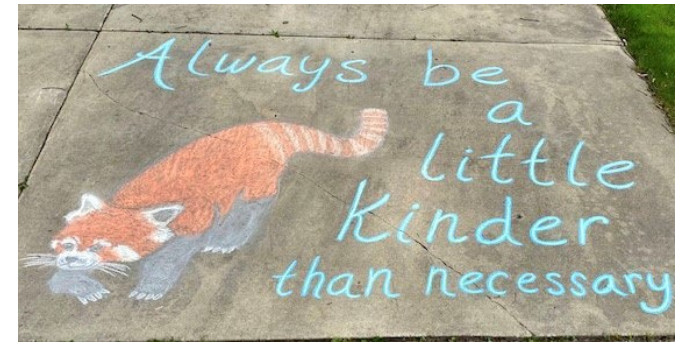 Always be
a
little
Kinder
than necessary